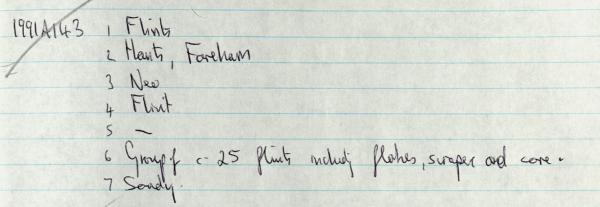 1991A143 1 Flints
2 Hants, Fareham
3 Neo
4 Flint
5 —
6 Group of c. 25 flints including flakes, scraper and core.
7 Sandy.